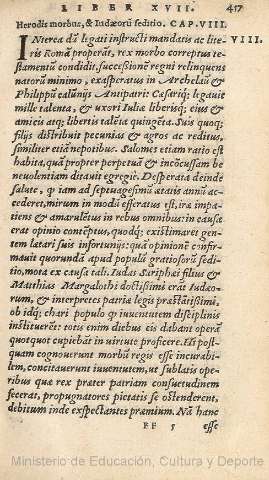 LIBER XVII. 417
Herodis morbus, & Iudæorũ seditio. CAP. VIII.
INterea dũ legati instructi mandatis ac lite- VIII.
ris Romã properãt, rex morbo correptus te-
stamentũ condidit, successionẽ regni relinquens
natorũ minimo, exasperatus in Archelaũ &
Philippũ calũnijs Antipatri: Cæsariq; legauit
mille talenta, & uxori Iuliæ liberisq; eius &
amicis atq; libertis talẽta quingẽta. Suis quoq;
filijs distribuit pecunias & agros ac reditus,
similiter etiã nepotibus. Salomes etiam ratio est
habita, quã propter perpetuã & incõcussam be
neuolentiam ditauit egregiè. Desperata deinde
salute, q iam ad septuagesimũ ætatis annũ ac-
cederet, mirum in modũ efferatus est, iræ impa-
tiens & amarulẽtus in rebus omnibus: in causa
erat opinio contẽptus, quodq; existimaret gen-
tem lætari suis infortunijs: quã opinionẽ confir-
mauit quorundã apud populũ gratiosorũ sedi-
tio, mota ex causa tali. Iudas Sariphæi filius &
Matthias Margalothi doctissimi erãt Iudæo-
rum, & interpretes patriæ legis præstãtissimi,
ob idq; chari populo q iuuentutem disciplinis
instituerẽt: totis enim diebus eis dabant operã
quotquot cupiebãt in uirtute proficere. Hi post-
quam cognouerunt morbũ regis esse incurabi-
lem, concitauerunt iuuentutem, ut sublatis ope-
ribus quæ rex præter patriam consuetudinem
fecerat, propugnatores pietatis se ostenderent,
debitum inde exspectantes præmium. Nã hanc
FF 5 esse
Ministerio de Educación, Cultura y Deporte